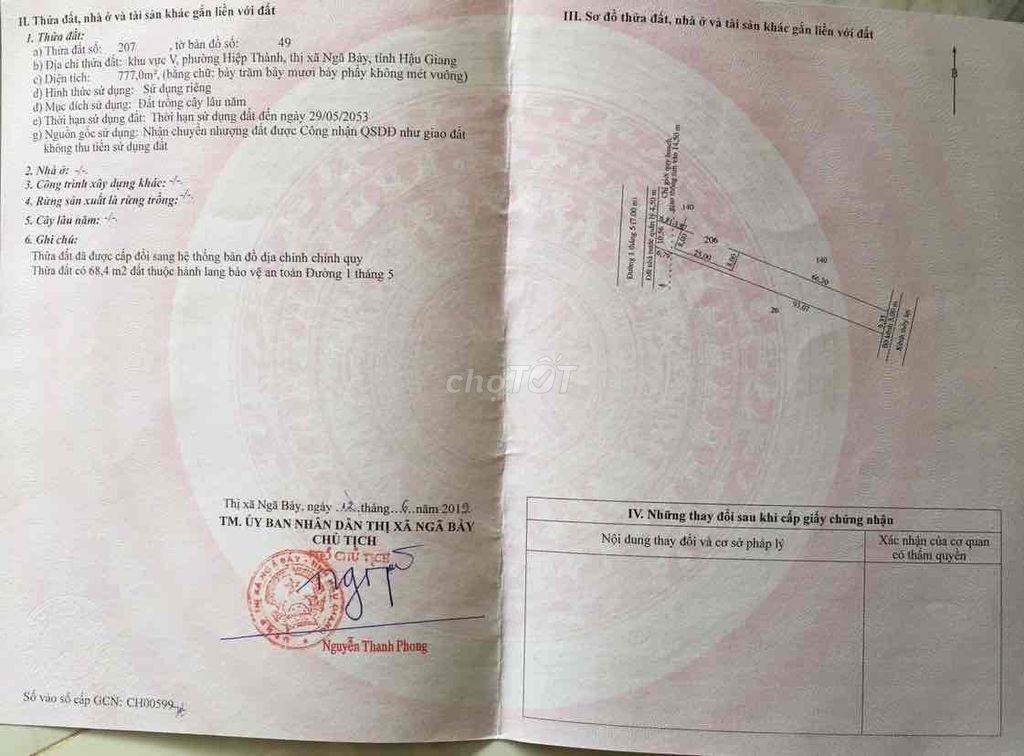 II. Thửa đất, nhà ở và tài sản khác gắn liền với đất
1. Thửa đất:
a) Thửa đất số: 207 , tờ bản đồ số: 49
b) Địa chỉ thửa đất: khu vực V, phường Hiệp Thành, thị xã Ngã Bảy, tỉnh Hậu Giang
c) Diện tích: 777,0m², (bằng chữ: bảy trăm bảy mươi bảy phẩy không mét vuông)
d) Hình thức sử dụng: Sử dụng riêng
đ) Mục đích sử dụng: Đất trồng cây lâu năm
e) Thời hạn sử dụng đất: Thời hạn sử dụng đất đến ngày 29/05/2053
g) Nguồn gốc sử dụng: Nhận chuyển nhượng đất được Công nhận QSDĐ như giao đất
không thu tiền sử dụng đất
2. Nhà ở: -/-.
3. Công trình xây dựng khác: -/-.
4. Rừng sản xuất là rừng trồng: -/-.
5. Cây lâu năm: -/-.
6. Ghi chú:
Thửa đất đã được cấp đổi sang hệ thống bản đồ địa chính chính quy
Thửa đất có 68,4 m2 đất thuộc hành lang bảo vệ an toàn Đường 1 tháng 5
Thị xã Ngã Bảy, ngày 12 tháng 6 năm 2019
TM. ỦY BAN NHÂN DÂN THỊ XÃ NGÃ BẢY
CHỦ TỊCH
PHÓ CHỦ TỊCH
Nguyễn Thanh Phong
Số vào sổ cấp GCN: CH00599
III. Sơ đồ thửa đất, nhà ở và tài sản khác gắn liền với đất
B
Đường 1 tháng 5 (7.00 m)
Đất nhà nước quản lý 4,50 m
Chỉ giới quy hoạch
giao thông tim vào 14,50 m
140
206
10.56
8.00
25.00
8.00
140
66.20
93.07
26
Bờ kênh 3.00 m
Kênh thủy lợi
chợTỐT
IV. Những thay đổi sau khi cấp giấy chứng nhận
Nội dung thay đổi và cơ sở pháp lý
Xác nhận của cơ quan
có thẩm quyền